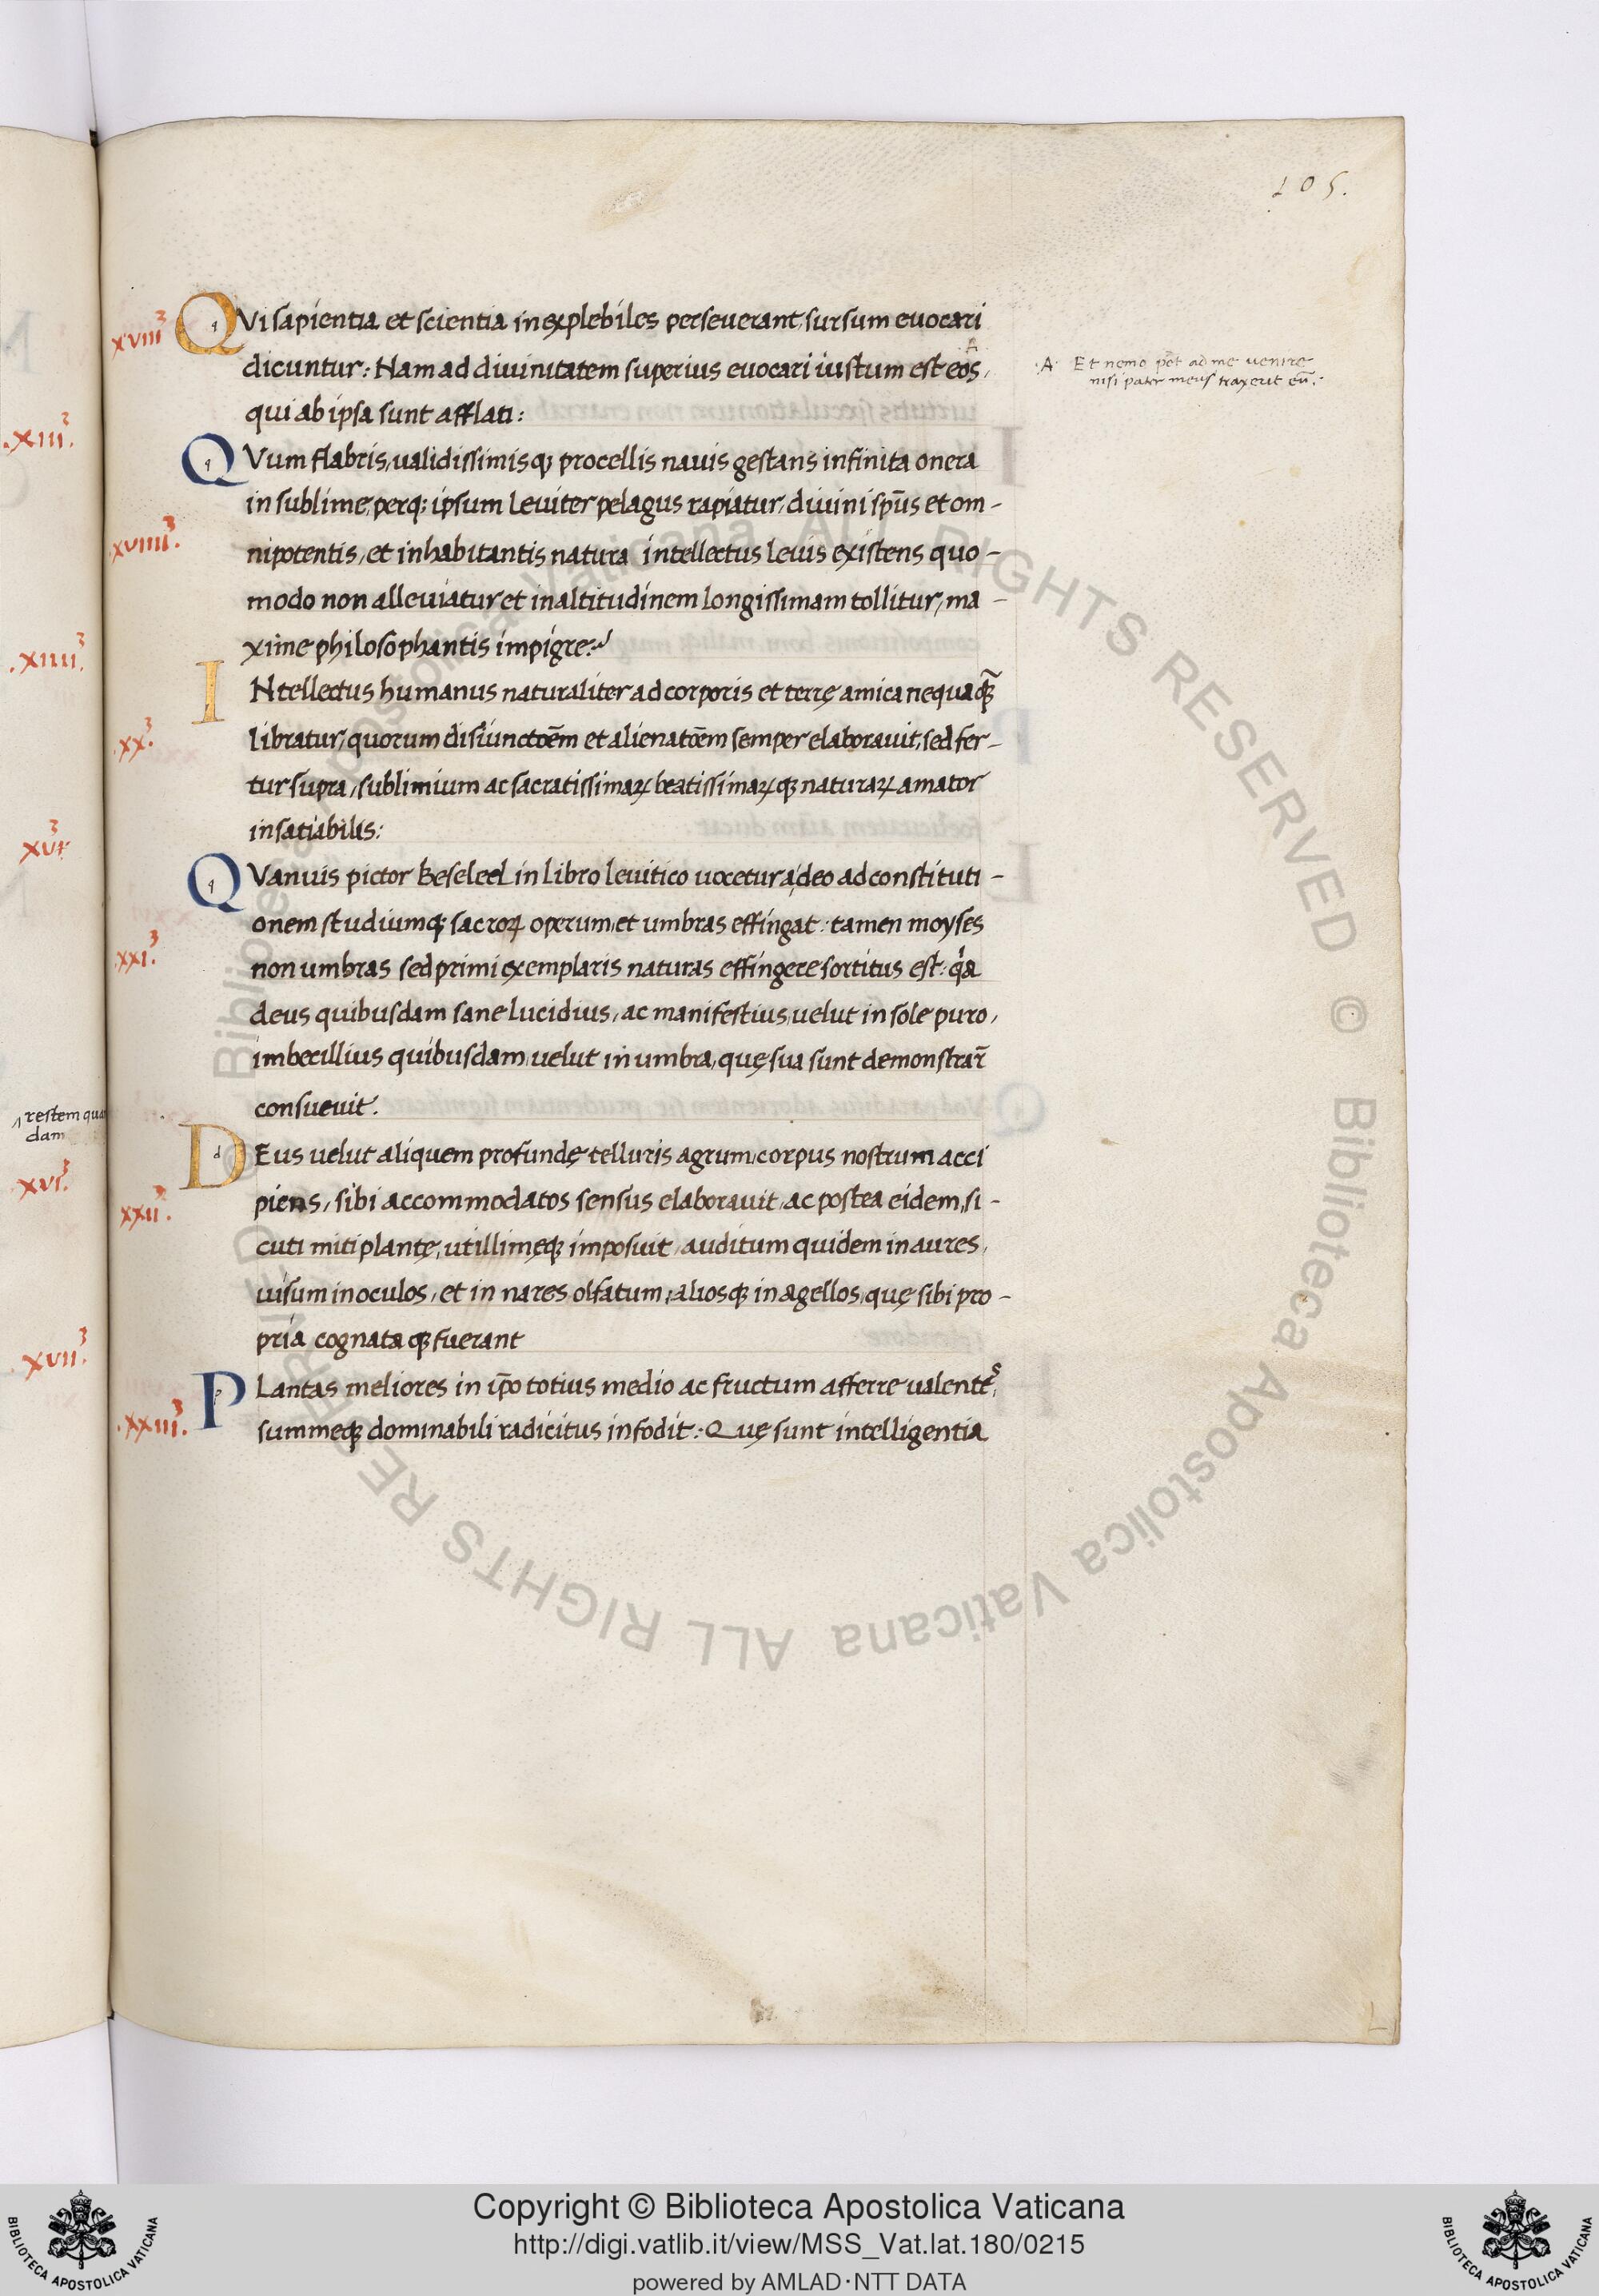 105.
xviii³ QVi sapientia et scientia inexplebiles perseuerant, sursum euocari
dicuntur: Nam ad diuinitatem superius euocari iustum est eos,
·A· Et nemo põt ad me uenire
nisi pater meus traxerit eũ:·
qui ab ipsa sunt afflati:
QVum flabris, ualidissimisq; procellis nauis gestans infinita onera
in sublime, perq; ipsum leuiter pelagus rapiatur, diuini spũs et om-
xviiii³. nipotentis, et inhabitantis natura intellectus leuis existens quo-
modo non alleuiatur et in altitudinem longissimam tollitur, ma-
xime philosophantis impigre:
INtellectus humanus naturaliter ad corporis et terrę amica nequaq̃
xx³. libratur, quorum disiunctoẽm et alienatoẽm semper elaborauit, sed fer-
tur supra, sublimium ac sacratissimaꝝ beatissimaꝝq; naturaꝝ amator
insatiabilis:
QVanuis pictor Beseleel in libro leuitico uocetur, adeo ad constituti-
onem studiumq; sacroꝝ operum, et umbras effingat: tamen moyses
xxi³. non umbras sed primi exemplaris naturas effingere sortitus est: qa
deus quibusdam sane lucidius, ac manifestius, uelut in sole puro,
imbecillius quibusdam, uelut in umbra, quę sua sunt demonstrar̃
consueuit.
DEus uelut aliquem profundę telluris agrum, corpus nostrum acci
xxii³. piens, sibi accommodatos sensus elaborauit, ac postea eidem, si-
cuti miti plantę, utillimęq; imposuit, auditum quidem in aures,
uisum in oculos, et in nares olfatum, aliosq; in agellos, quę sibi pro-
pria cognataq; fuerant
PLantas meliores in ip̃o totius medio ac fructum afferre ualentes,
xxiii³. summeq; dominabili radicitus infodit: Quę sunt intelligentia
.xiii³.
.xiiii³.
xvi³.
xvii³.
restem qua
dam
Copyright © Biblioteca Apostolica Vaticana
http://digi.vatlib.it/view/MSS_Vat.lat.180/0215
powered by AMLAD·NTT DATA
BIBLIOTECA APOSTOLICA VATICANA
BIBLIOTECA APOSTOLICA VATICANA
Biblioteca Apostolica Vaticana ALL RIGHTS RESERVED © Biblioteca Apostolica Vaticana ALL RIGHTS RESERVED ©